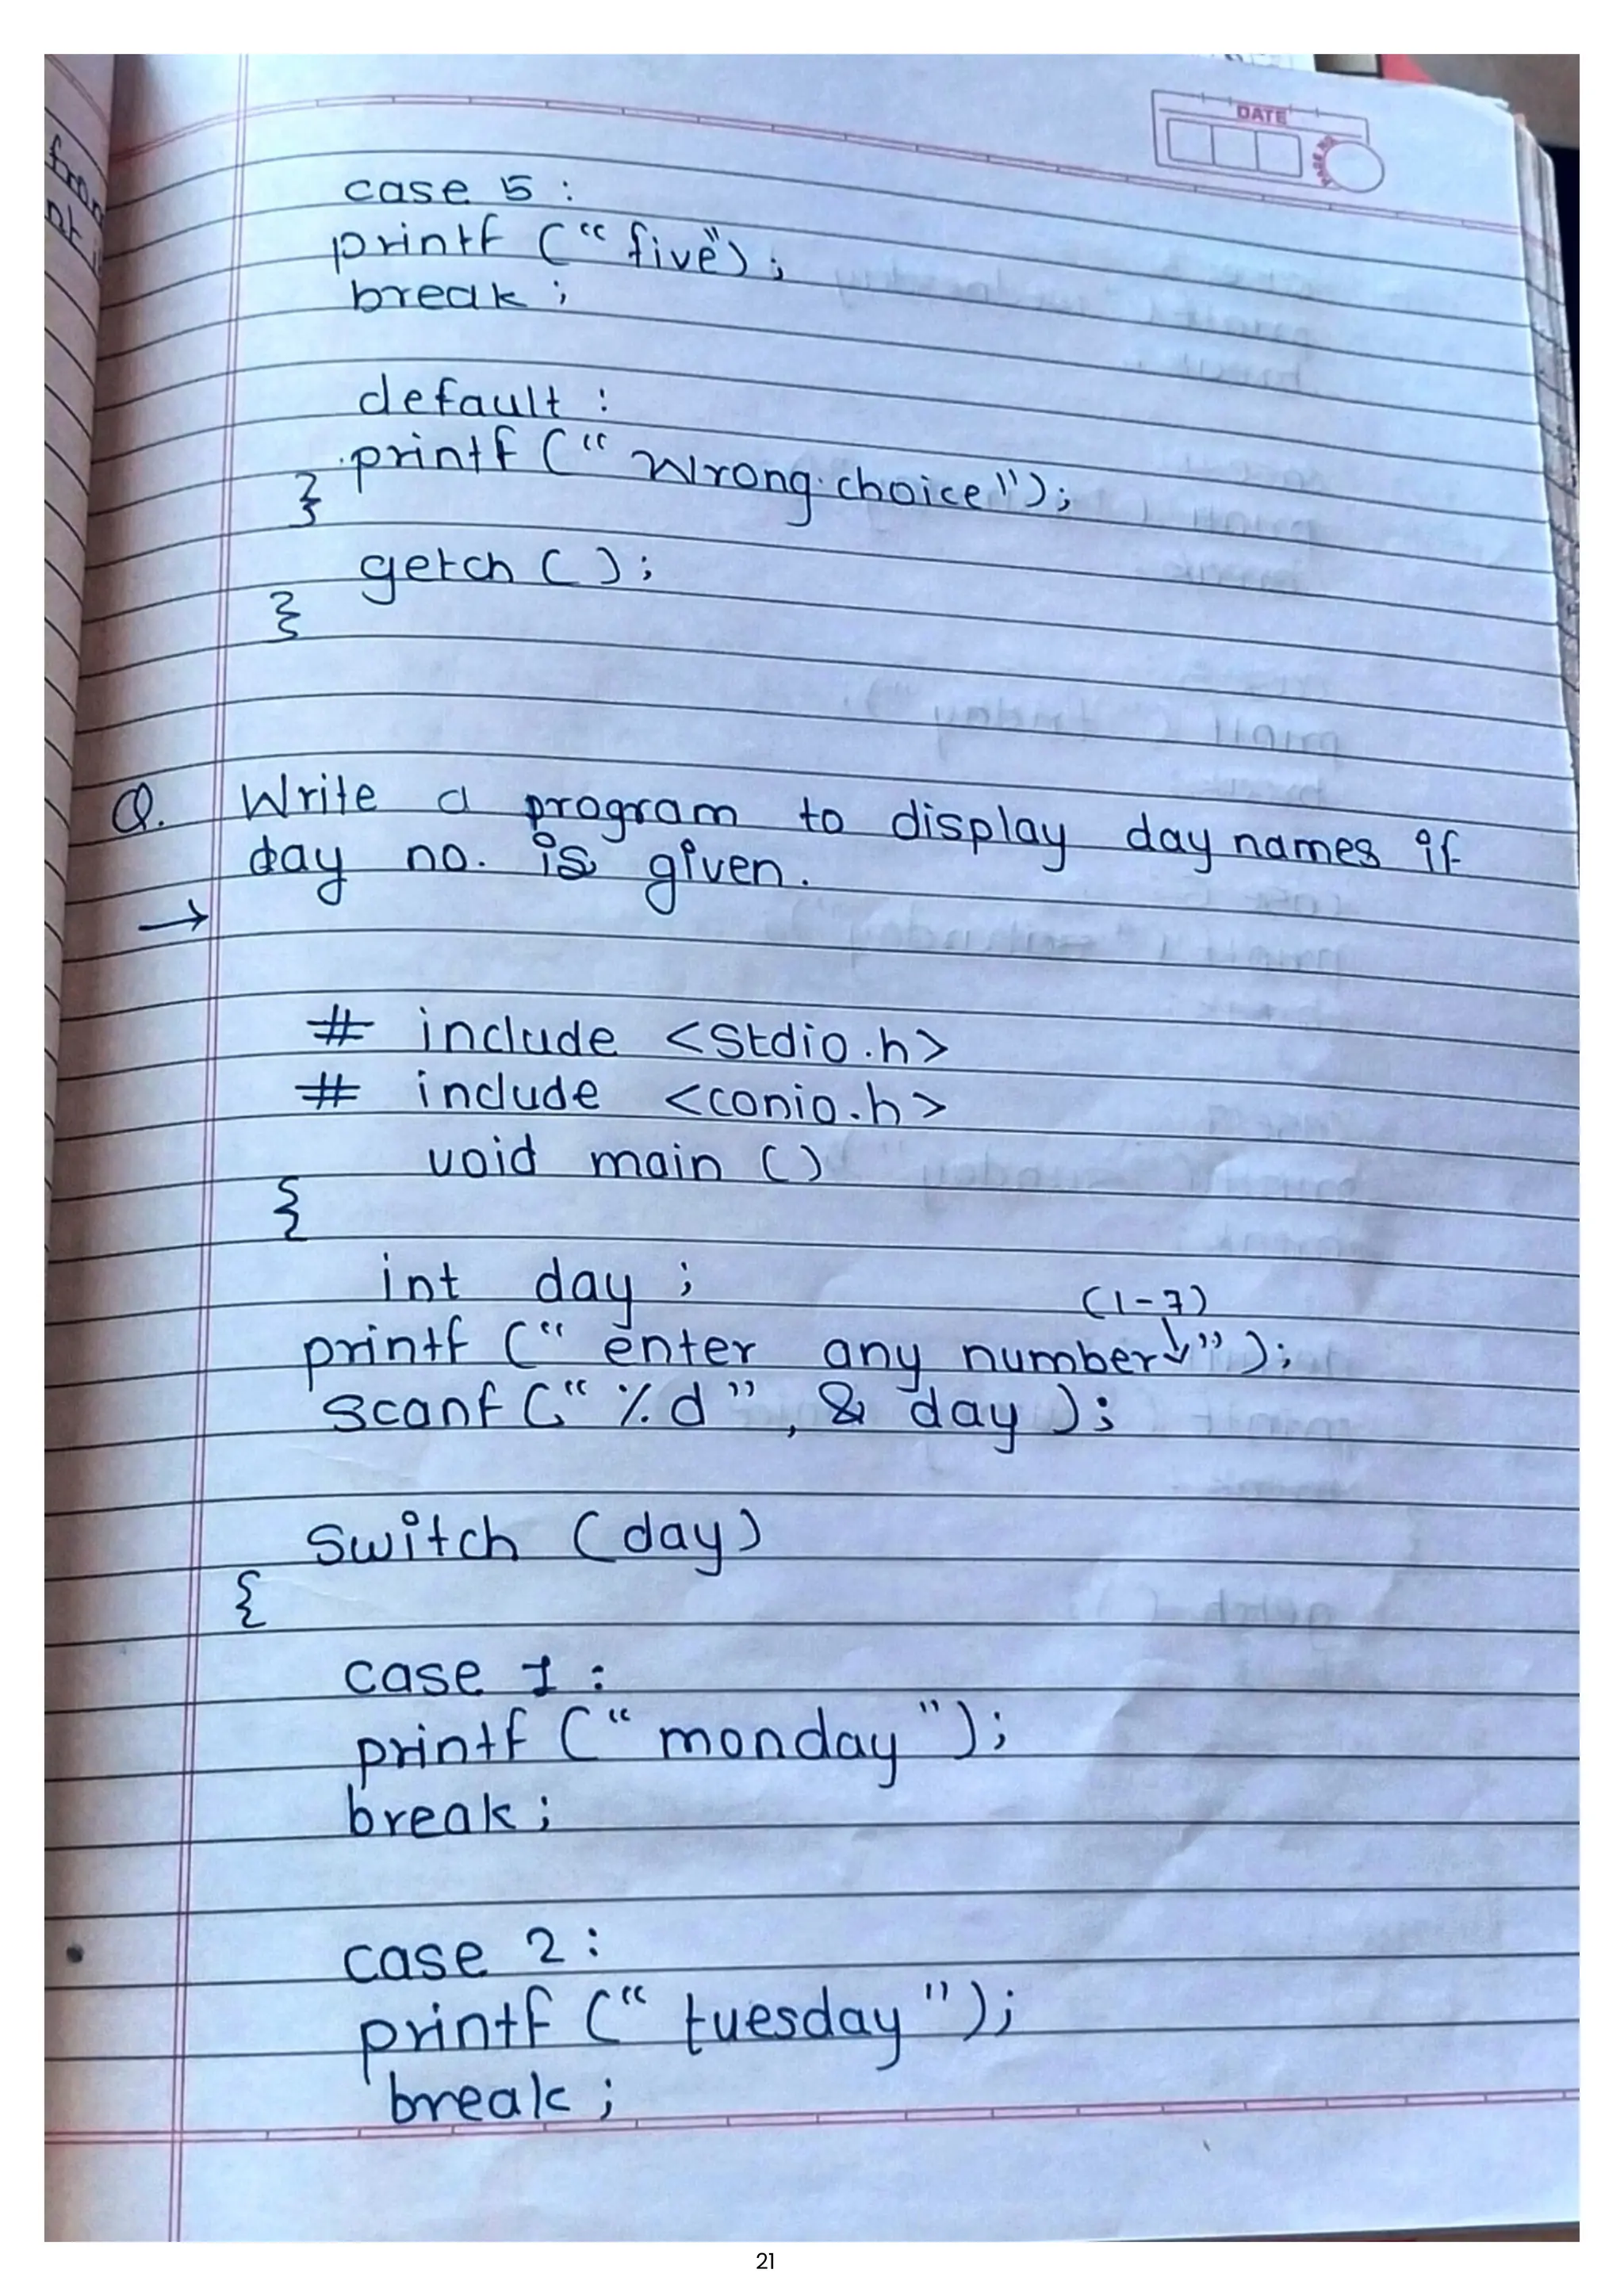 DATE
case 5 :
printf (“ five”) ;
break ;
default :
printf (“ Wrong choice ") ;
}
getch ( ) ;
}
Q. Write a program to display day names if
day no. is given.
→
# include <Stdio.h>
# include <conio.h>
void main ( )
{
int day ;
(1-7)
printf (“ enter any number↓”) ;
scanf (“ %d ” , & day ) ;
switch (day)
{
case 1 :
printf (“ monday ") ;
break ;
case 2 :
printf (“ tuesday ") ;
break ;
21